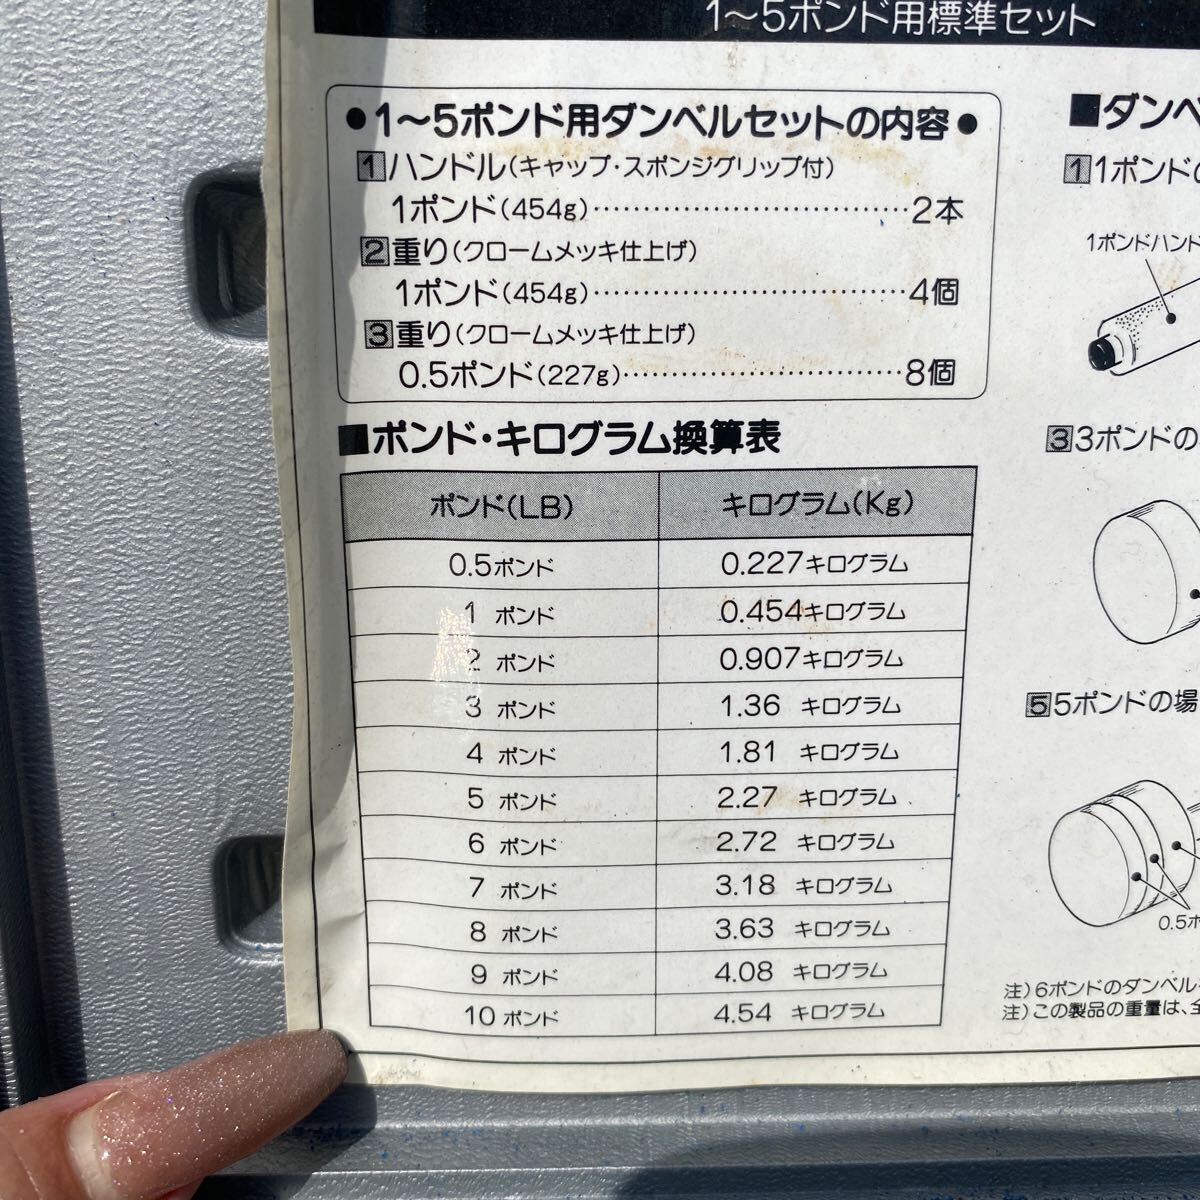 1〜5ポンド用標準セット
●1〜5ポンド用ダンベルセットの内容●
1ハンドル(キャップ・スポンジグリップ付)
1ポンド(454g)……………………………2本
2重り(クロームメッキ仕上げ)
1ポンド(454g)……………………………4個
3重り(クロームメッキ仕上げ)
0.5ポンド(227g)…………………………8個
■ポンド・キログラム換算表
ポンド(LB) キログラム(Kg)
0.5ポンド 0.227キログラム
1 ポンド 0.454キログラム
2 ポンド 0.907キログラム
3 ポンド 1.36 キログラム
4 ポンド 1.81 キログラム
5 ポンド 2.27 キログラム
6 ポンド 2.72 キログラム
7 ポンド 3.18 キログラム
8 ポンド 3.63 キログラム
9 ポンド 4.08 キログラム
10 ポンド 4.54 キログラム
■ダンベ
1 1ポンドの
1ポンドハンド
3 3ポンドの
5 5ポンドの場
0.5ポ
注)6ポンドのダンベル
注)この製品の重量は、全